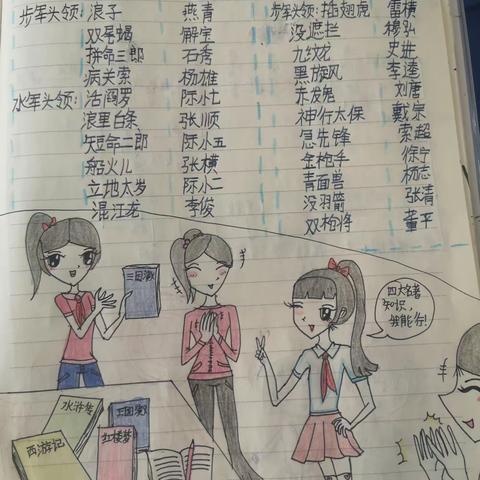 步军头领：浪子 燕青
双尾蝎 解宝
拼命三郎 石秀
病关索 杨雄
水军头领：活阎罗 阮小七
浪里白条 张顺
短命二郎 阮小五
船火儿 张横
立地太岁 阮小二
混江龙 李俊
步军头领：插翅虎 雷横
没遮拦 穆弘
九纹龙 史进
黑旋风 李逵
赤发鬼 刘唐
神行太保 戴宗
急先锋 索超
金枪手 徐宁
青面兽 杨志
没羽箭 张清
双枪将 董平
三国演义
四大名著
知识，
我能行！
水浒传
三国演义
西游记
红楼梦